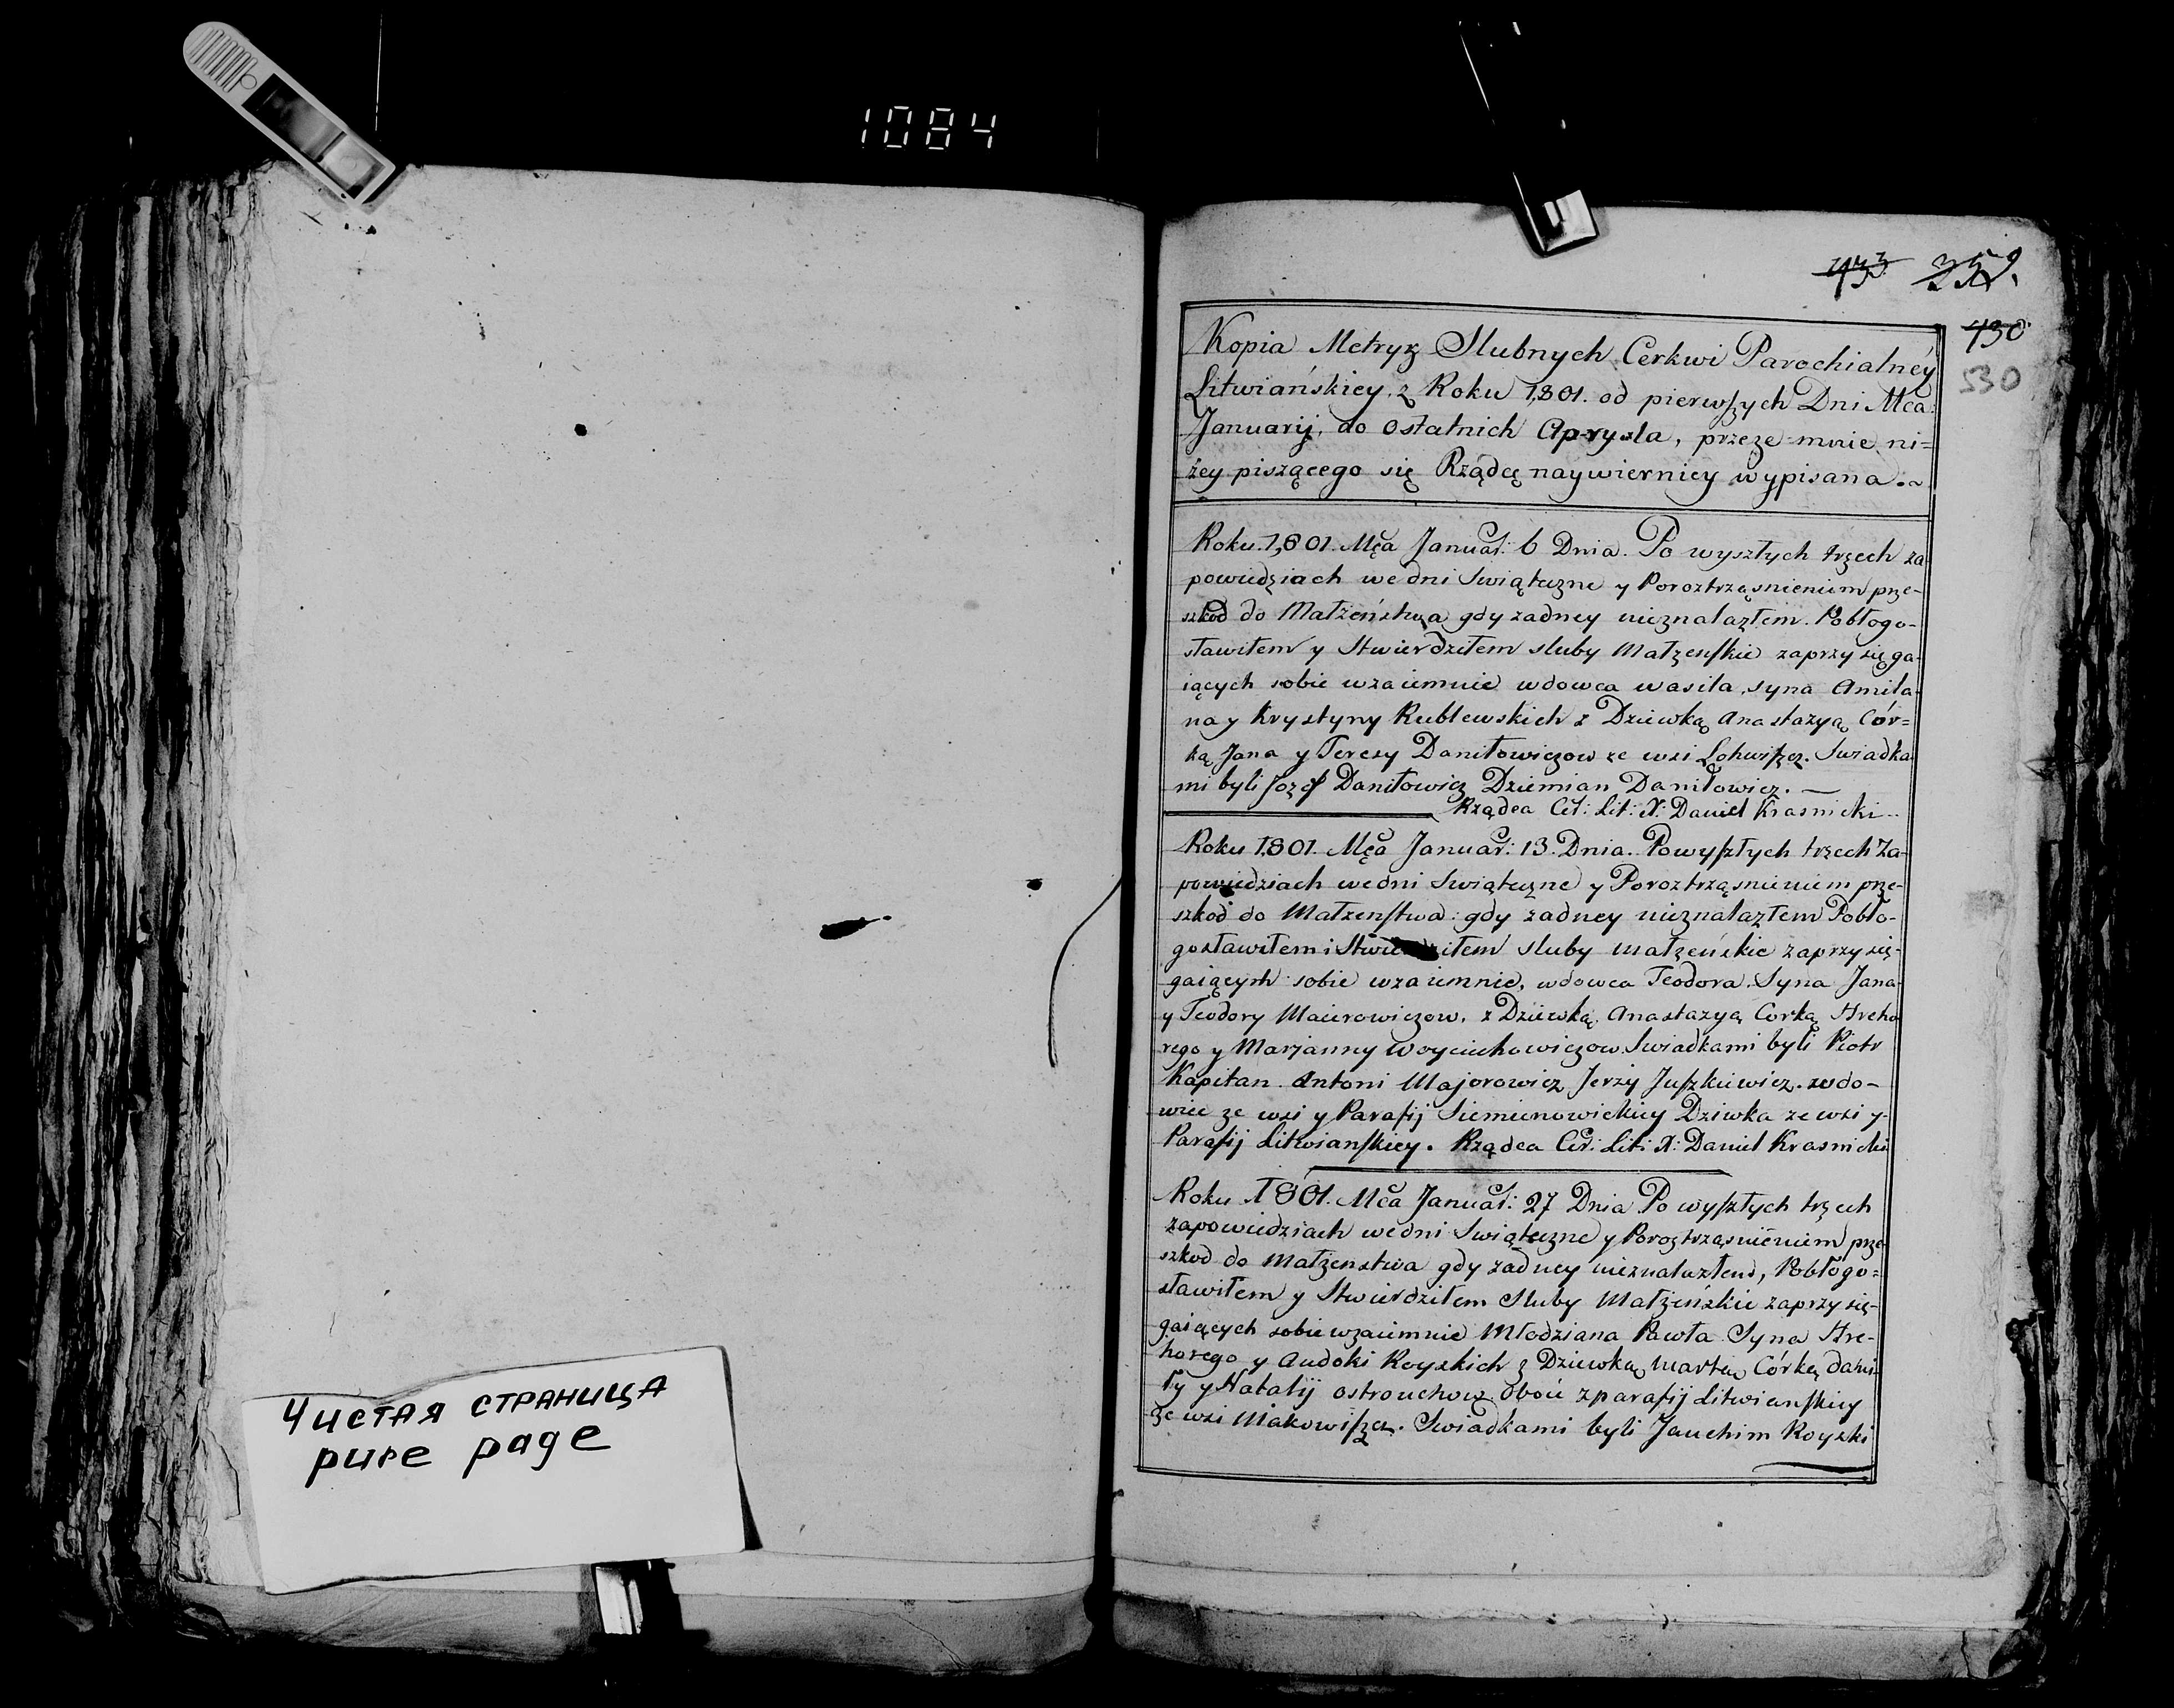 1084
433 359.
430
530
Чистая страница
pure page
Kopia Metryk Slubnych Cerkwi Parochialnéy
Litwiańskiey, z Roku 1,801. od pierwszych Dni Mca:
Januarij, do ostatnich Apryla, przeze mnie ni=
żey piszącego się Rządcę naywierniey wypisana.~
Roku. 1,801. Mca Januar: 6 Dnia. Po wyszłych trzech za
powiedziach we dni Swiąteczne y Poroztrząsnieniem prze-
szkod do Małżeństwa gdy żadney nieznalazłem. Pobłogo-
sławiłem y Stwierdziłem sluby Małżenskie zaprzysięga-
iących sobie wzaiemnie wdowca wasila, syna Amila-
na y Krystyny Rublewskich z Dziewką Anastazyą Cór=
ką Jana y Teresy Daniłowiczow ze wsi Lohwiszcz. Swiadka
mi byli Jozef Daniłowicz Dziemian Daniłowicz. —
Rządca Cer: Lit: X: Daniel Krasnicki..
Roku 1,801. Mca Januar: 13. Dnia. Powyszłych trzech Za-
powiedziach wedni Swiąteczne y Poroztrząsnieniem prze-
szkod do Małzenstwa: gdy żadney nieznalazłem Pobło-
gosławiłem i Stwierdziłem sluby małżeńskie zaprzysię-
gaiących sobie wzaiemnie, wdowca Teodora. Syna Jana
y Teodory Maierowiczow. z Dziewką. Anastazyą Corką Hreho
rego y Marjanny Woyciechowiczow. Swiadkami byli Piotr
Kapitan Antoni Majorowicz Jerzy Juszkiewicz. wdo-
wiec ze wsi y Parafij Siemienowickiey Dziwka ze wsi y-
Parafij Litwianskiey. Rządca Cer: Lit: X: Daniel Krasnicki
Roku 1801. Mca Januar: 27 Dnia Po wyszłych trzech
zapowiedziach wedni Swiąteczne y Poroztrząsnieniem prze
szkod do Małżenstwa gdy żadney nieznalazłem, Pobłogo=
sławiłem y Stwierdziłem Sluby Małżeńskie zaprzysię-
gaiących sobie wzaiemnie Młodziana Pawła Syna Hre-
horego y Audoki Royskich z Dziewką Martą Córką dani-
ły y Natalij Ostrouchow oboie z parafij Litwianskiey
ze wsi Makowiszcz. Swiadkami byli Jauchim Royski